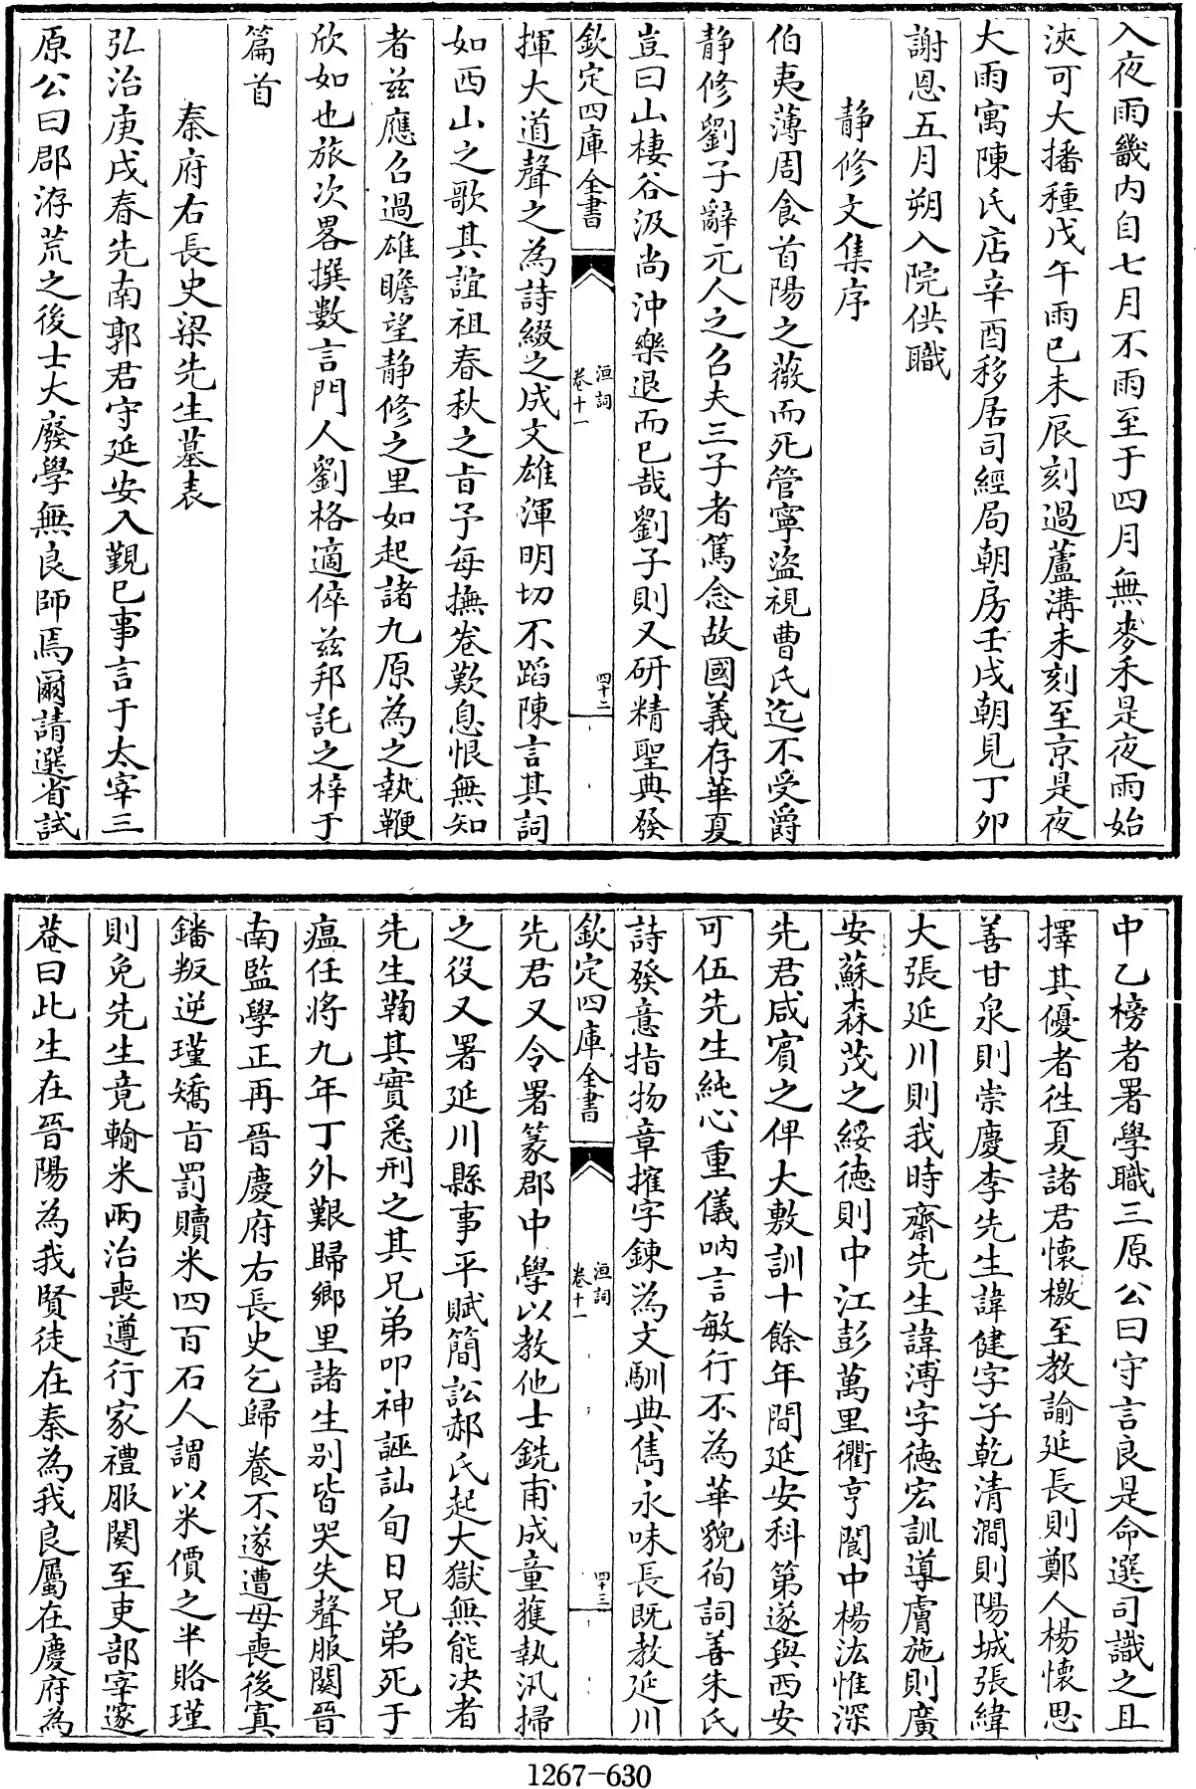 入夜雨畿内自七月不雨至于四月無麥禾是夜雨始
浹可大播種戊午雨已未辰刻過蘆溝未刻至京是夜
大雨寓陳氏店辛酉移居司經局朝房壬戌朝見丁卯
謝恩五月朔入院供職
静修文集序
伯夷薄周食首陽之薇而死管寧盜視曹氏迄不受爵
静修劉子辭元人之召夫三子者篤念故國義存華夏
豈曰山棲谷汲尚沖樂退而已哉劉子則又研精聖典發
欽定四庫全書
洹詞
卷十一
四十二
揮大道聲之為詩綴之成文雄渾明切不蹈陳言其詞
如西山之歌其誼祖春秋之㫖予每撫卷歎息恨無知
者兹應召過雄瞻望静修之里如起諸九原為之執鞭
欣如也旅次畧撰數言門人劉格適倅兹邦託之梓于
篇首
秦府右長史梁先生墓表
弘治庚戌春先南郭君守延安入覲已事言于太宰三
原公曰郡洊荒之後士大廢學無良師焉爾請選省試
中乙榜者署學職三原公曰守言良是命選司識之且
擇其優者徃夏諸君懷檄至教諭延長則鄭人楊懷思
善甘泉則崇慶李先生諱健字子乾清澗則陽城張緯
大張延川則我時齋先生諱溥字德宏訓導膚施則廣
安蘇森茂之綏德則中江彭萬里衢亨閬中楊汯惟深
先君咸賓之俾大敷訓十餘年間延安科第遂與西安
可伍先生純心重儀吶言敏行不為華貌徇詞善朱氏
詩發意指物章摧字鍊為文馴典雋永味長既教延川
欽定四庫全書
洹詞
卷十一
四十三
先君又令署篆郡中學以教他士銑甫成童獲執汛掃
之役又署延川縣事平賦簡訟郝氏起大獄無能决者
先生鞫其實悉刑之其兄弟叩神誣訕旬日兄弟死于
瘟任將九年丁外艱歸鄉里諸生别皆哭失聲服闋晉
南監學正再晉慶府右長史乞歸養不遂遭母喪後寘
鐇叛逆瑾矯㫖罰贖米四百石人謂以米價之半賂瑾
則免先生竟輸米兩治喪遵行家禮服闋至吏部宰邃
菴曰此生在晉陽為我賢徒在秦為我良屬在慶府為
1267-630